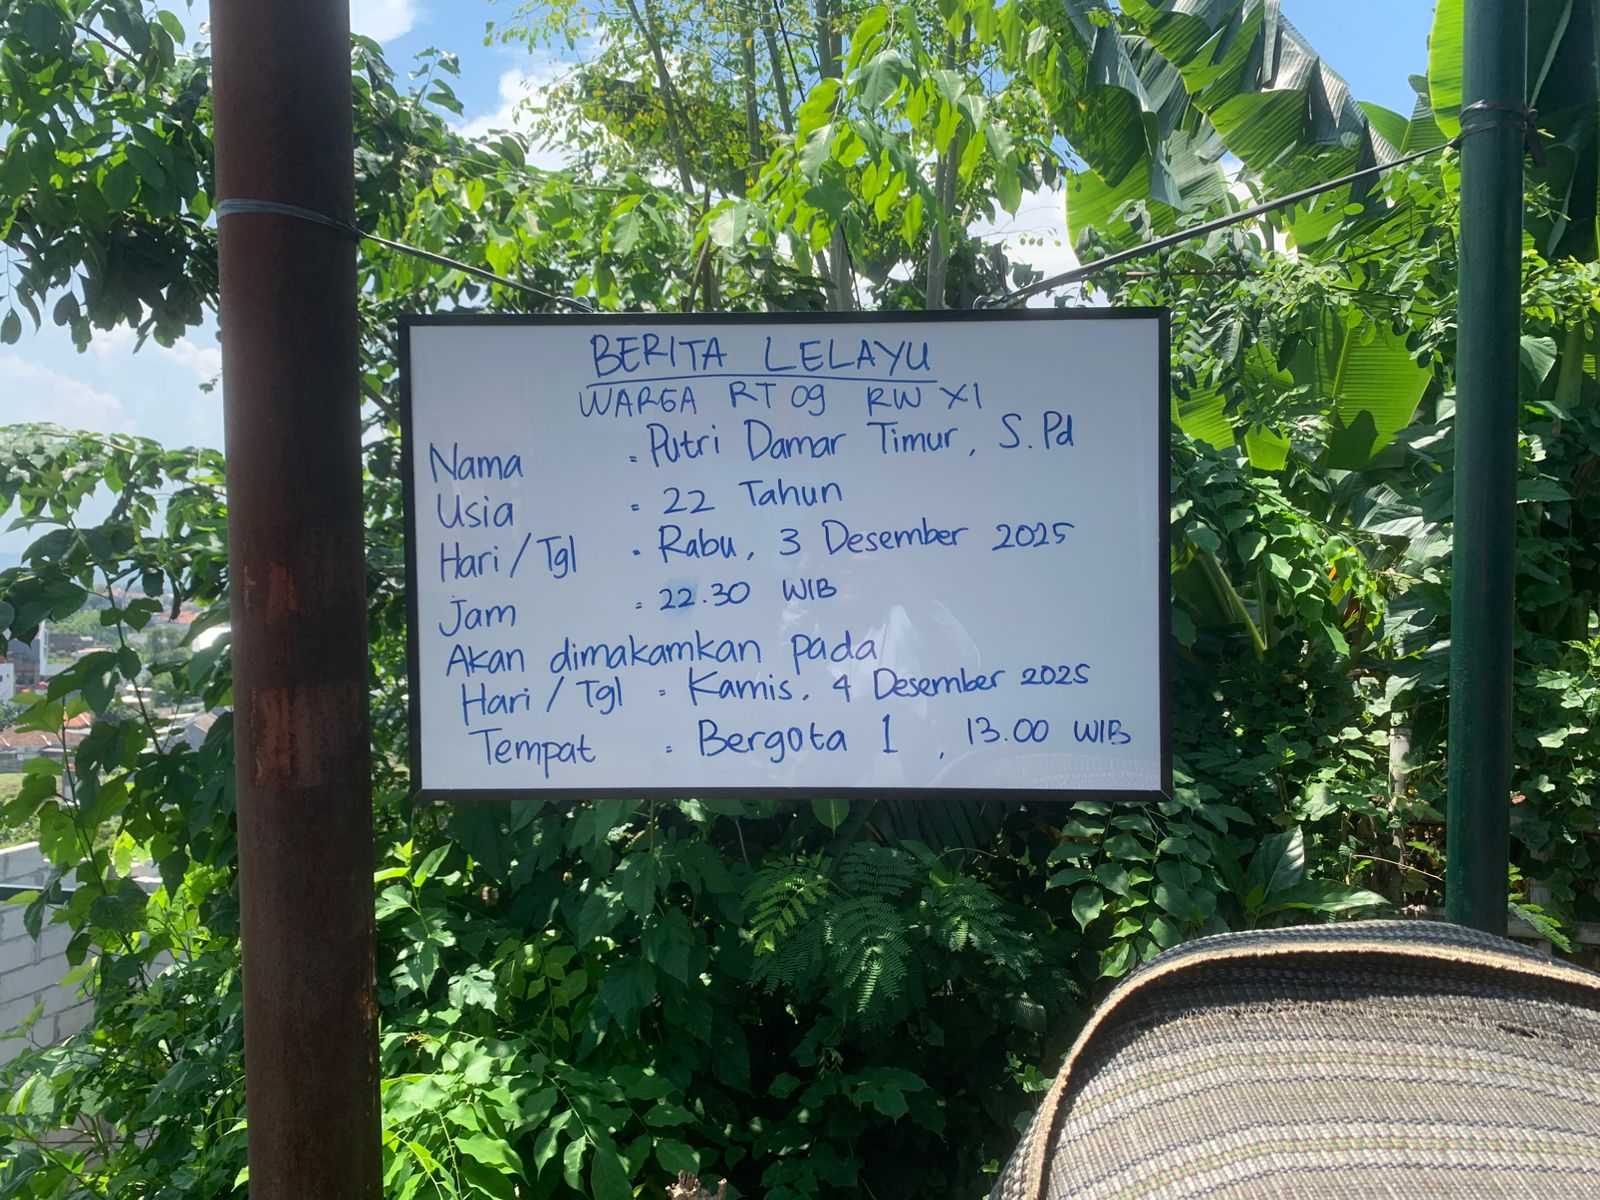 BERITA LELAYU
WARGA RT 09 RW XI
Nama : Putri Damar Timur, S.Pd
Usia : 22 Tahun
Hari/Tgl : Rabu, 3 Desember 2025
Jam : 22.30 WIB
Akan dimakamkan pada
Hari/Tgl : Kamis, 4 Desember 2025
Tempat : Bergota 1, 13.00 WIB